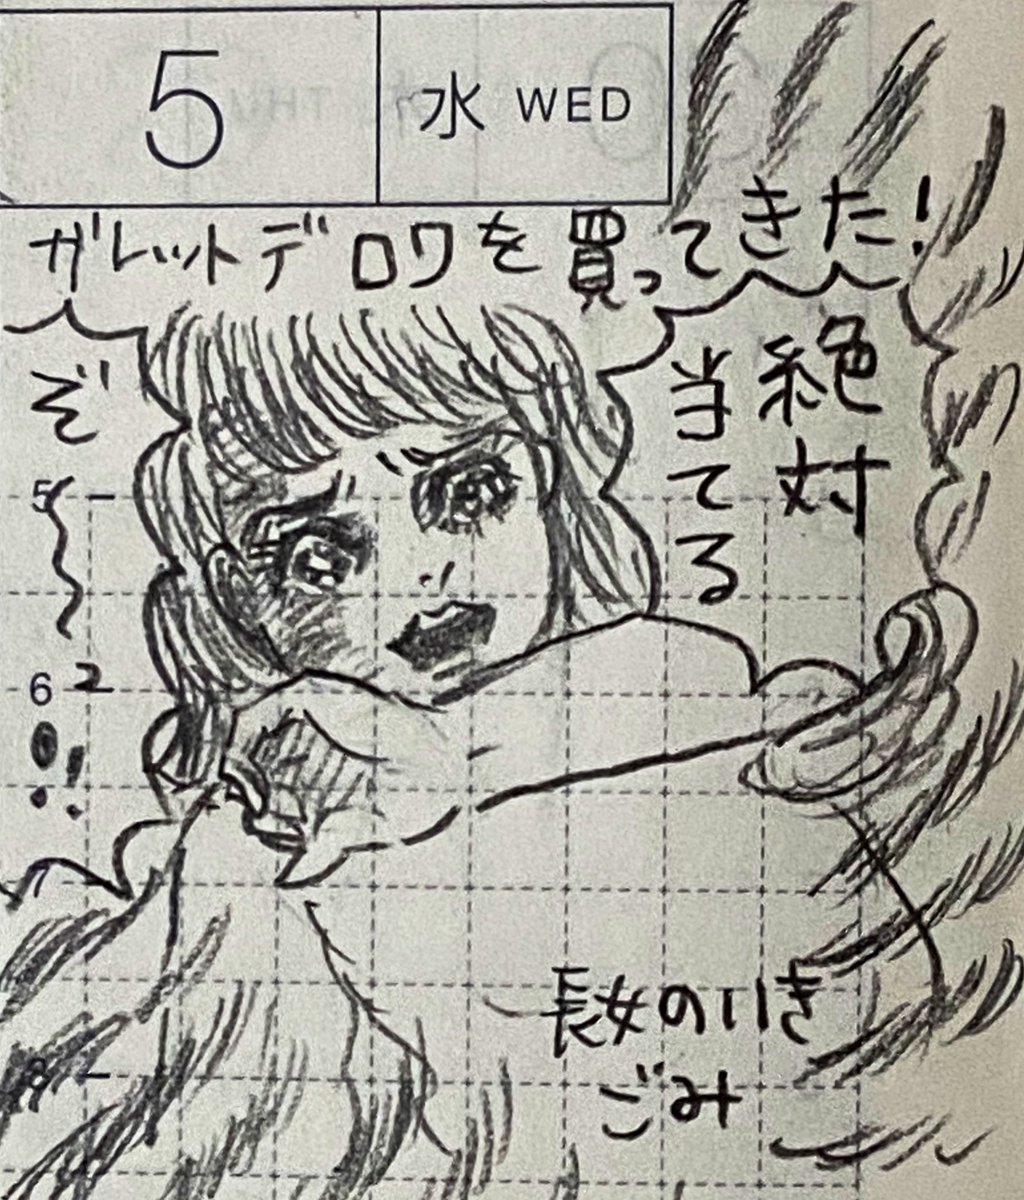 5
水 WED
ガレットデロワを買ってきた!
絶対
当てる
ぞ〜〜
!!
5
6
7
8
長女のいき
ごみ